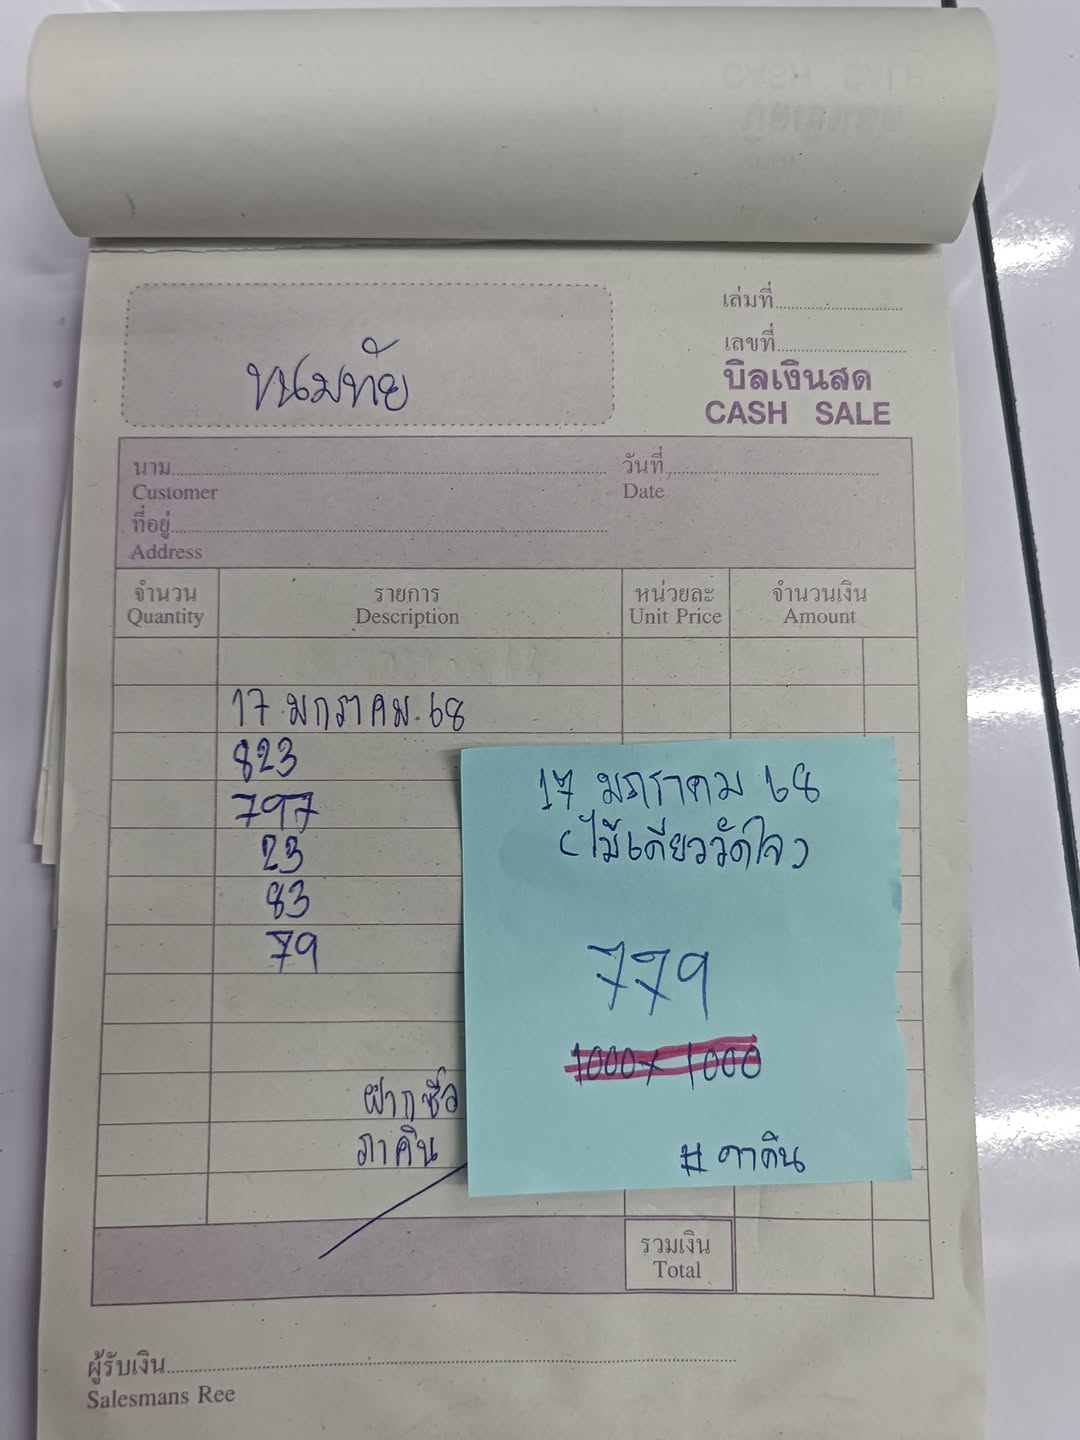 เล่มที่
เลขที่
บิลเงินสด
CASH SALE
ขนมทัย
นาม
วันที่
Customer
Date
ที่อยู่
Address
จำนวน
รายการ
หน่วยละ
จำนวนเงิน
Quantity
Description
Unit Price
Amount
17 มกราคม 68
823
797
23
83
79
ฝากซื้อ
ภาคิน
17 มกราคม 68
(ไม้เดียววัดใจ)
779
1000x1000
# ภาคิน
รวมเงิน
Total
ผู้รับเงิน
Salesmans Ree